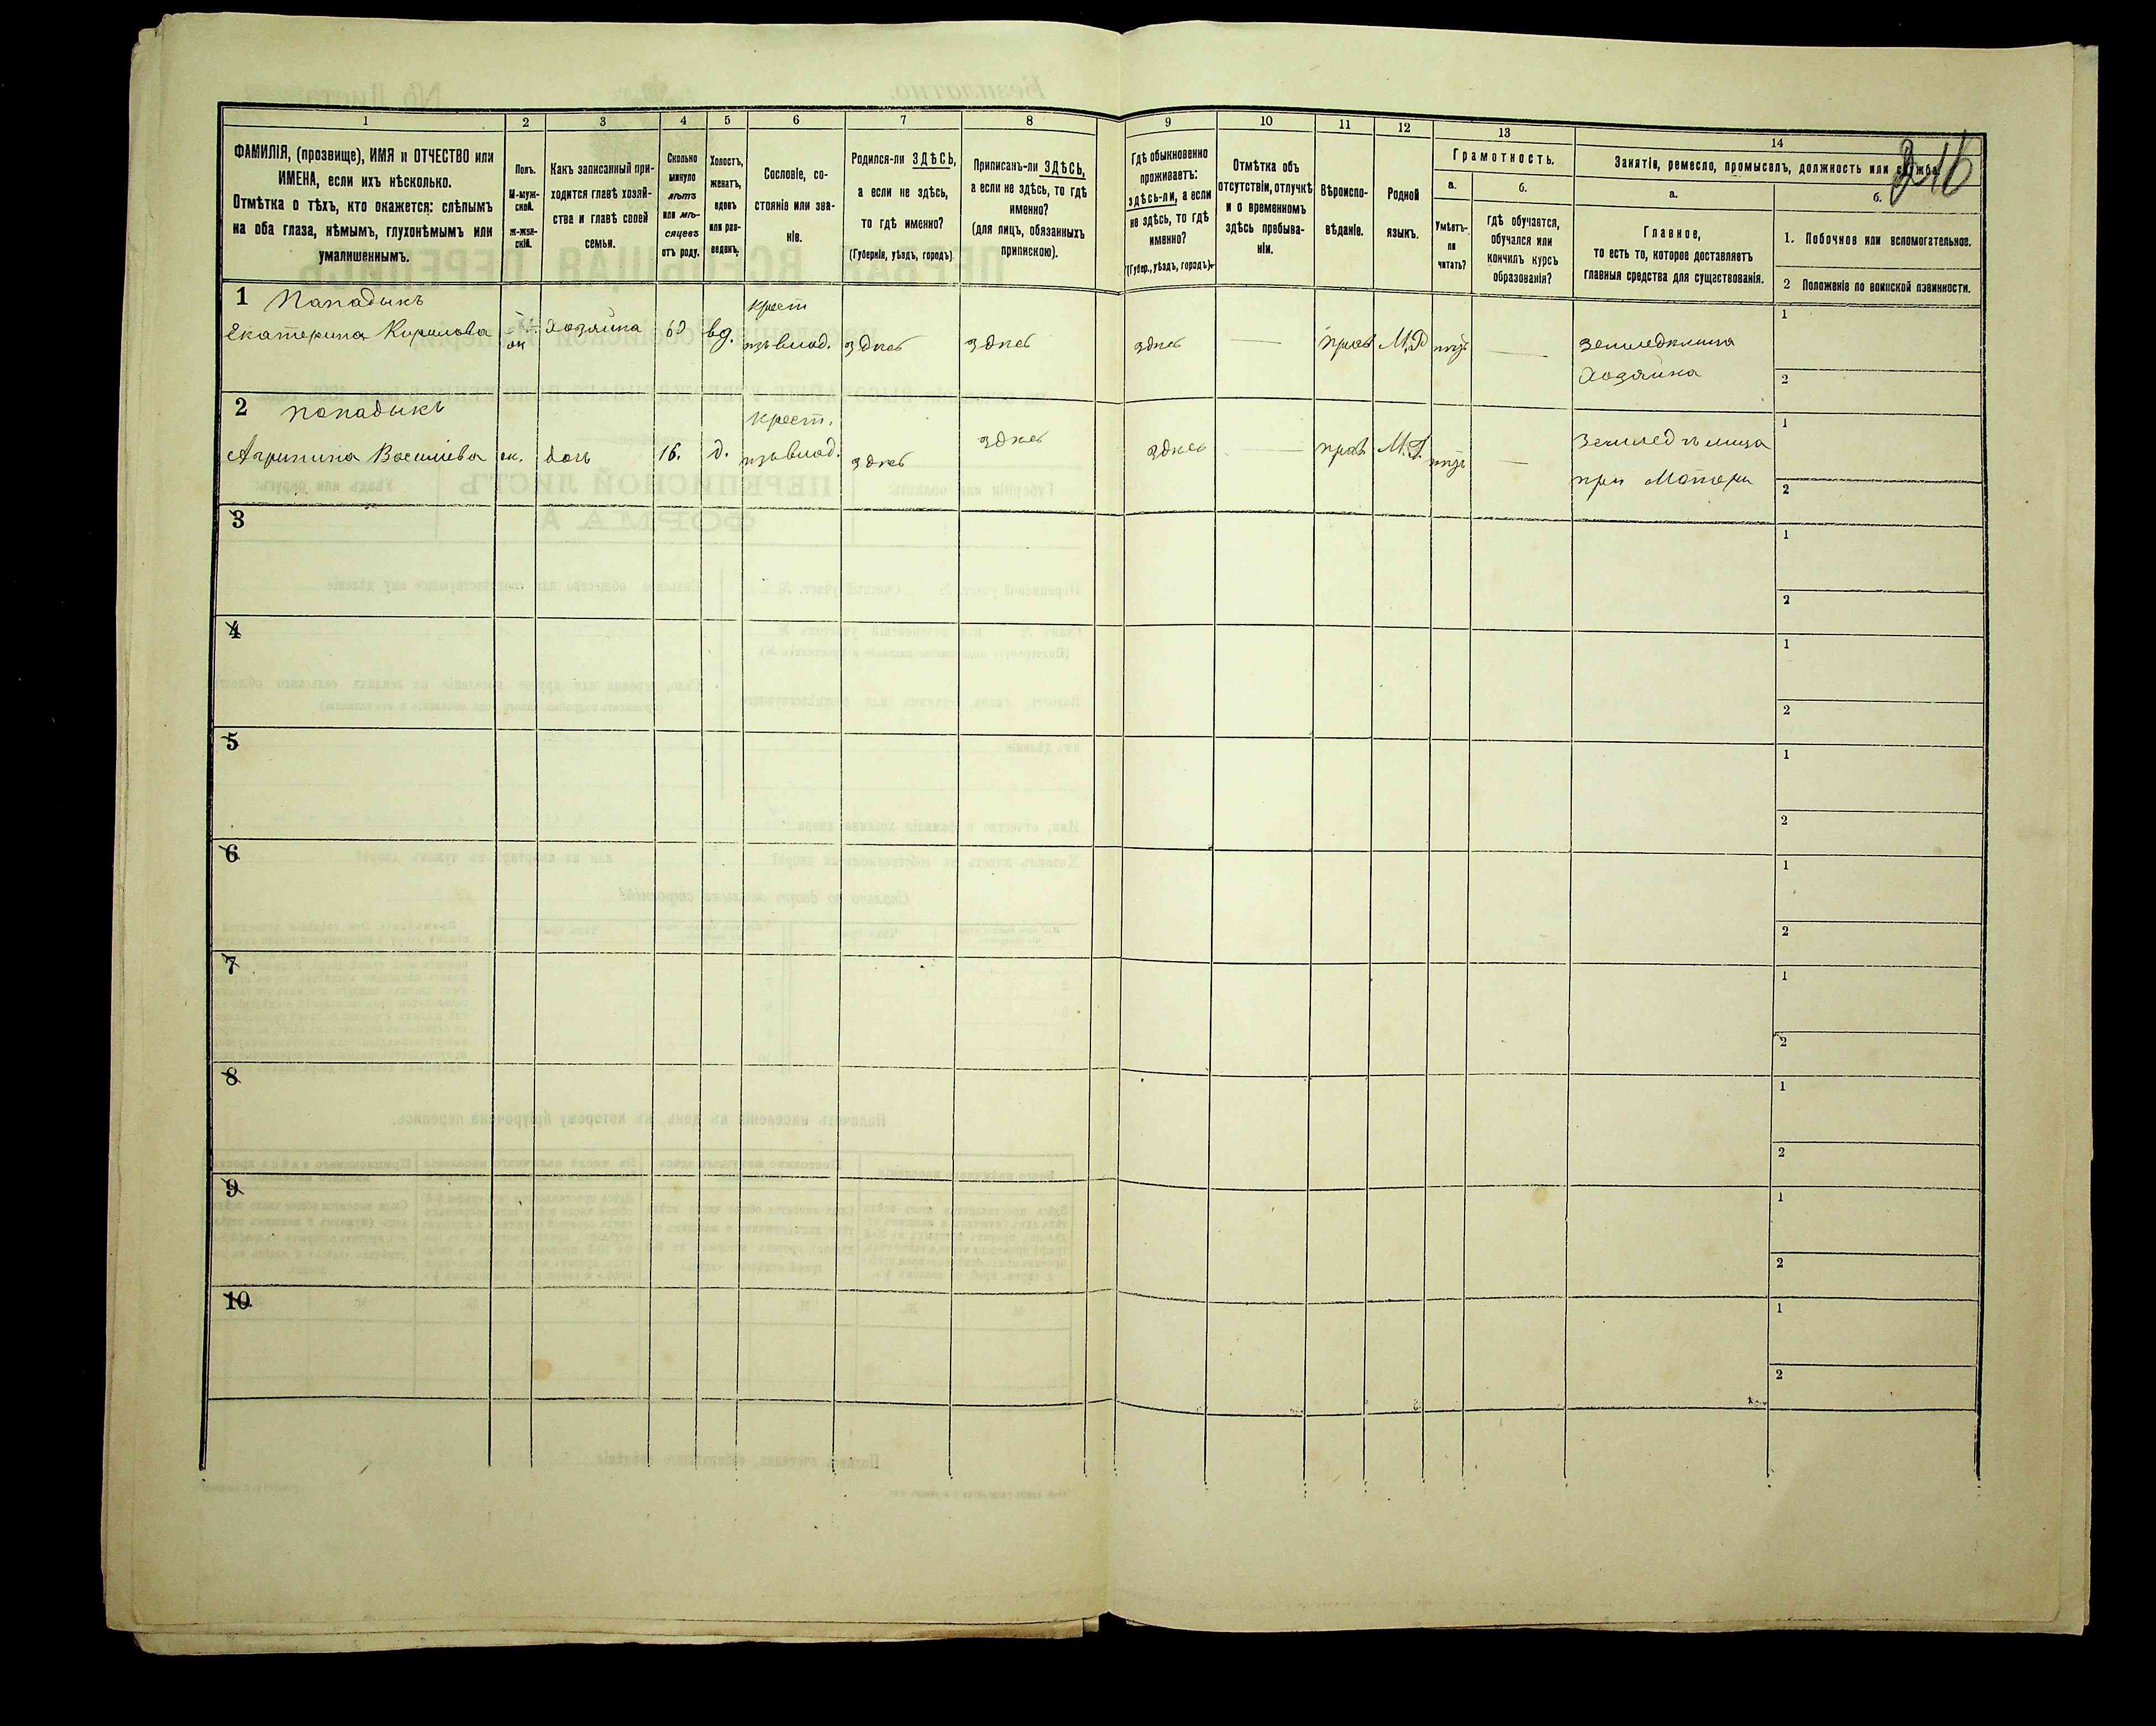 1
2
3
4
5
6
7
8
9
10
11
12
13
14
ФАМИЛІЯ, (прозвище), ИМЯ и ОТЧЕСТВО или
ИМЕНА, если ихъ нѣсколько.
Отмѣтка о тѣхъ, кто окажется: слѣпымъ
на оба глаза, нѣмымъ, глухонѣмымъ или
умалишеннымъ.
Полъ.
М-муж-
ской.
Ж-жен-
скій.
Какъ записанный при-
ходится главѣ хозяй-
ства и главѣ своей
семьи.
Сколько
минуло
лѣтъ
или мѣ-
сяцевъ
отъ роду.
Холостъ,
женатъ,
вдовъ
или раз-
веденъ.
Сословіе, со-
стояніе или зва-
ніе.
Родился-ли ЗДѢСЬ,
а если не здѣсь,
то гдѣ именно?
(Губернія, уѣздъ, городъ).
Приписанъ-ли ЗДѢСЬ,
а если не здѣсь, то гдѣ
именно?
(для лицъ, обязанныхъ
припискою).
Гдѣ обыкновенно
проживаетъ:
здѣсь-ли, а если
не здѣсь, то гдѣ
именно?
(Губер., уѣздъ, городъ).
Отмѣтка объ
отсутствіи, отлучкѣ
и о временномъ
здѣсь пребыва-
ніи.
Вѣроиспо-
вѣданіе.
Родной
языкъ.
Грамотность.
а.
б.
Умѣетъ-
ли
читать?
Гдѣ обучается,
обучался или
кончилъ курсъ
образованія?
Занятіе, ремесло, промыселъ, должность или служба.
16
а.
б.
Главное,
то есть то, которое доставляетъ
главныя средства для существованія.
1. Побочное или вспомогательное.
2 Положеніе по воинской повинности.
1 Пападыкъ
Екатерина Кирилова
Хозяйка
60
вд.
крест
изъ влад.
здѣсь
здѣсь
здѣсь
—
прав
М.Р
нѣтъ
—
земледѣлица
Хозяйка
1
2
2 Попадыкъ
Агрипина Василіева
ж.
дочь
16.
д.
крест.
изъ влад.
здѣсь
здѣсь
здѣсь
—
прав
М.Р.
нѣтъ
—
Земледѣлица
при Матери
1
2
3
1
2
4
1
2
5
1
2
6
1
2
7
1
2
8
1
2
9
1
2
10
1
2